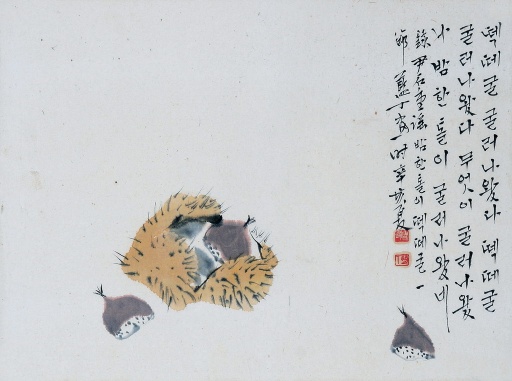 떽떼굴 굴러나왔다 떽떼굴
굴러나왔다 무엇이 굴러나왔
나 밤 한 톨이 굴러나왔네
錄 尹石重謠 밤 한 톨이 떽떼굴
時 辛 夏